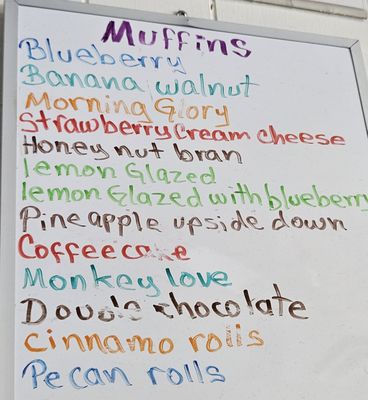 Muffins
Blueberry
Banana walnut
Morning Glory
Strawberry Cream cheese
Honey nut bran
lemon Glazed
lemon Glazed with blueberry
Pineapple upside down
Coffee cake
Monkey love
Double chocolate
cinnamo rolls
Pecan rolls